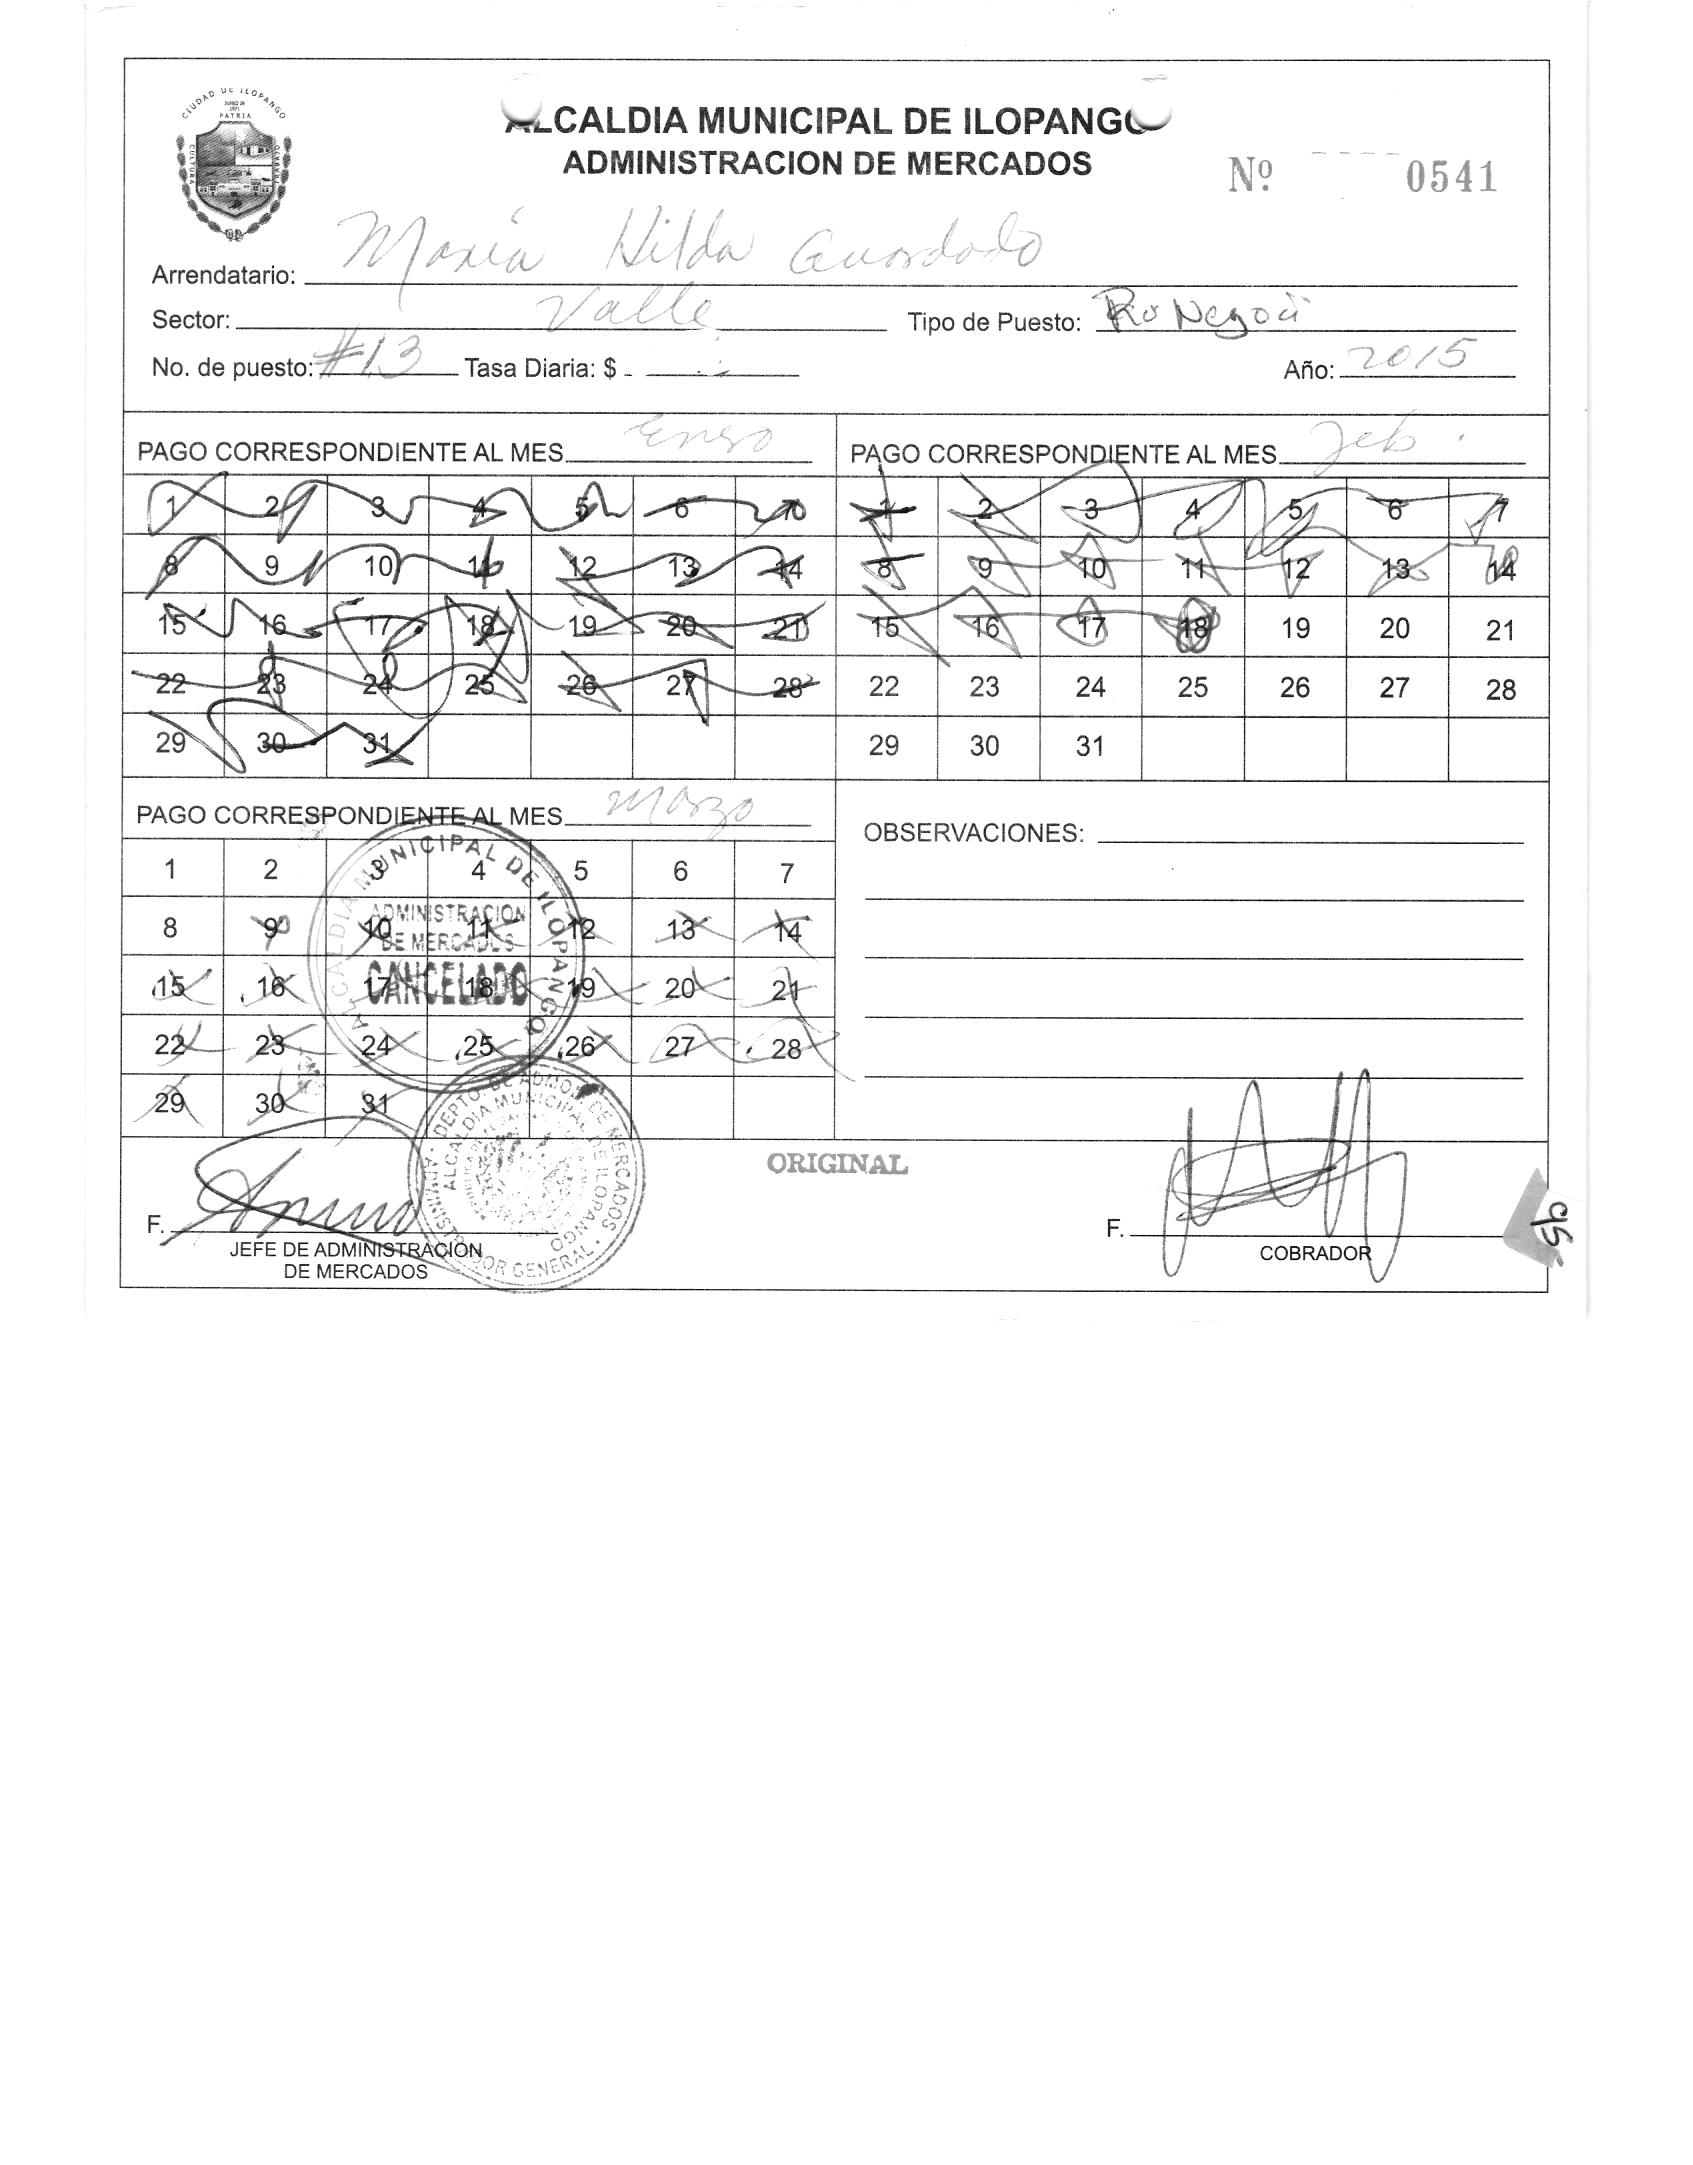 CIUDAD DE ILOPANGO
PATRIA
CULTURA
ALCALDIA MUNICIPAL DE ILOPANGO
ADMINISTRACION DE MERCADOS
Nº 0541
Arrendatario: María Hilda Guardado
Sector: Valle Tipo de Puesto: Ro Negoci
No. de puesto: #13 Tasa Diaria: $ Año: 2015
PAGO CORRESPONDIENTE AL MES Enero
1 2 3 4 5 6 7
8 9 10 11 12 13 14
15 16 17 18 19 20 21
22 23 24 25 26 27 28
29 30 31
PAGO CORRESPONDIENTE AL MES Feb.
1 2 3 4 5 6 7
8 9 10 11 12 13 14
15 16 17 18 19 20 21
22 23 24 25 26 27 28
29 30 31
PAGO CORRESPONDIENTE AL MES Marzo
1 2 3 4 5 6 7
8 9 10 11 12 13 14
15 16 17 18 19 20 21
22 23 24 25 26 27 28
29 30 31
ALCALDIA MUNICIPAL DE ILOPANGO
ADMINISTRACION
DE MERCADOS
CANCELADO
OBSERVACIONES:
ADMINISTRADOR GENERAL · DEPTO. DE ADMON. DE MERCADOS
ALCALDIA MUNICIPAL DE ILOPANGO
ORIGINAL
F.
JEFE DE ADMINISTRACIÓN
DE MERCADOS
F.
COBRADOR